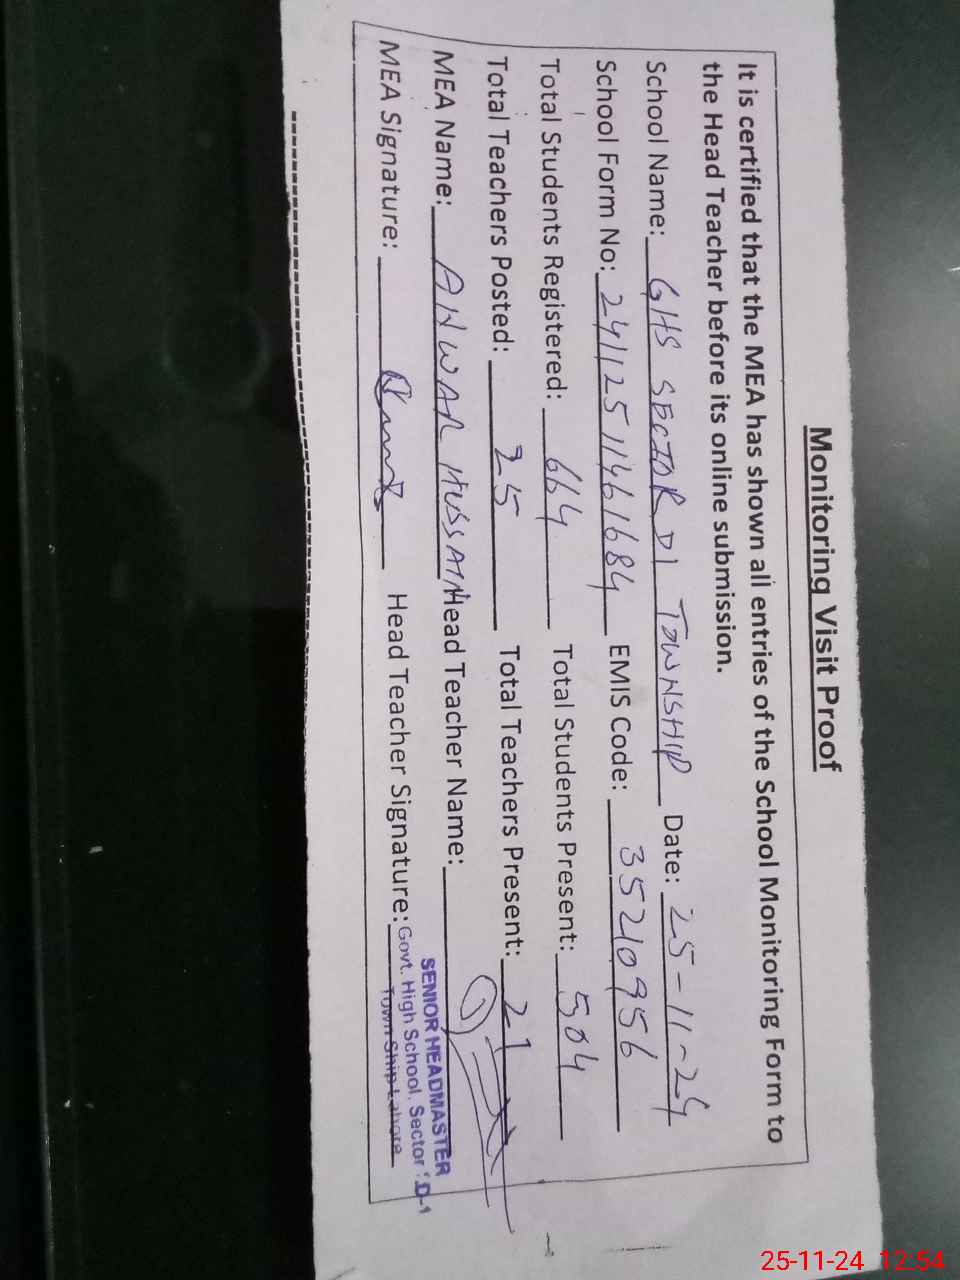 Monitoring Visit Proof
It is certified that the MEA has shown all entries of the School Monitoring Form to
the Head Teacher before its online submission.
School Name: GHS SECTOR D1 TOWNSHIP Date: 25-11-24
School Form No: 24112511461684 EMIS Code: 35210956
Total Students Registered: 664 Total Students Present: 504
Total Teachers Posted: 25 Total Teachers Present: 21
MEA Name: ANWAR HUSSAIN Head Teacher Name:
MEA Signature: Head Teacher Signature:
SENIOR HEADMASTER
Govt. High School, Sector D-1
Town Ship Lahore
25-11-24 12:54